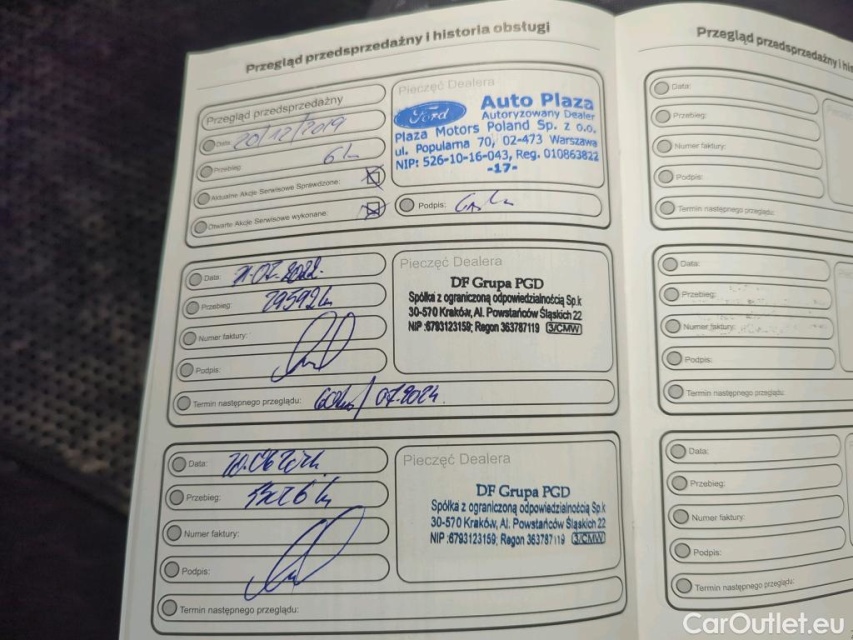 Przegląd przedsprzedażny i historia obsługi
Przegląd przedsprzedażny
Data: 20/12/2019
Przebieg: 6 km
Aktualne Akcje Serwisowe Sprawdzone:
Otwarte Akcje Serwisowe wykonane:
Pieczęć Dealera
Ford
Auto Plaza
Autoryzowany Dealer
Plaza Motors Poland Sp. z o.o.
ul. Popularna 70, 02-473 Warszawa
NIP: 526-10-16-043, Reg. 010863822
-17-
Podpis:
Data: 21.07.2022.
Przebieg:
Numer faktury:
Podpis:
Termin następnego przeglądu: 60tkm/07.2024
Pieczęć Dealera
DF Grupa PGD
Spółka z ograniczoną odpowiedzialnością Sp.k
30-570 Kraków, Al. Powstańców Śląskich 22
NIP :6793123159; Regon 363787119 3/CMW
Data:
Przebieg:
Numer faktury:
Podpis:
Termin następnego przeglądu:
Pieczęć Dealera
DF Grupa PGD
Spółka z ograniczoną odpowiedzialnością Sp.k
30-570 Kraków, Al. Powstańców Śląskich 22
NIP :6793123159; Regon 363787119 3/CMW
Przegląd przedsprzedażny i his
Data:
Przebieg:
Numer faktury:
Podpis:
Termin następnego przeglądu:
Data:
Przebieg:
Numer faktury:
Podpis:
Termin następnego przeglądu:
Data:
Przebieg:
Numer faktury:
Podpis:
Termin następnego przeglądu:
CarOutlet.eu